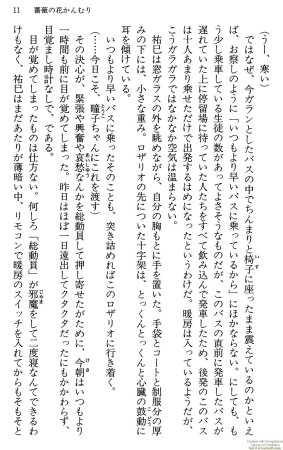 11　薔薇の花かんむり
（うー、寒い）
ではなぜ、今ガランとしたバスの中でちんまりと椅子に座ったまま震えているのかといえ
ば、お察しのように「いつもより早いバスに乗っているから」にほかならない。にしても、も
う少し乗車している生徒の数があってよさそうなものだが、このバスの直前に発車したバスが
遅れていた上に停留場に待っていた人たちをすべて飲み込んで発車したため、後発のこのバス
は十人あまり乗せただけで出発するはめになったというわけだ。暖房は入っているようだが、
こうガラガラではなかなか空気は温まらない。
祐巳は窓ガラスの外を眺めながら、自分の胸もとに手を置いた。手袋とコートと制服分の厚
みの下には、小さな重み。ロザリオの先についた十字架は、とっくんとっくんと心臓の鼓動に
耳を傾けている。
いつもより早いバスに乗ったそのことも、突き詰めればこのロザリオに行き着く。
（……今日こそ、瞳子ちゃんにこれを渡す）
その決心が、緊張や興奮や哀愁なんかを総動員して押し寄せたために、今朝はいつもより
一時間も前に目が覚めてしまった。昨日はほぼ一日遠出してクタクタだったにもかかわらず、
目覚まし時計なしで、である。
目が覚めてしまったものは仕方ない。何しろ「総動員」が邪魔をして二度寝なんてできるわ
けもなく、祐巳はまだあたりが薄暗い中、リモコンで暖房のスイッチを入れてからもそもそと